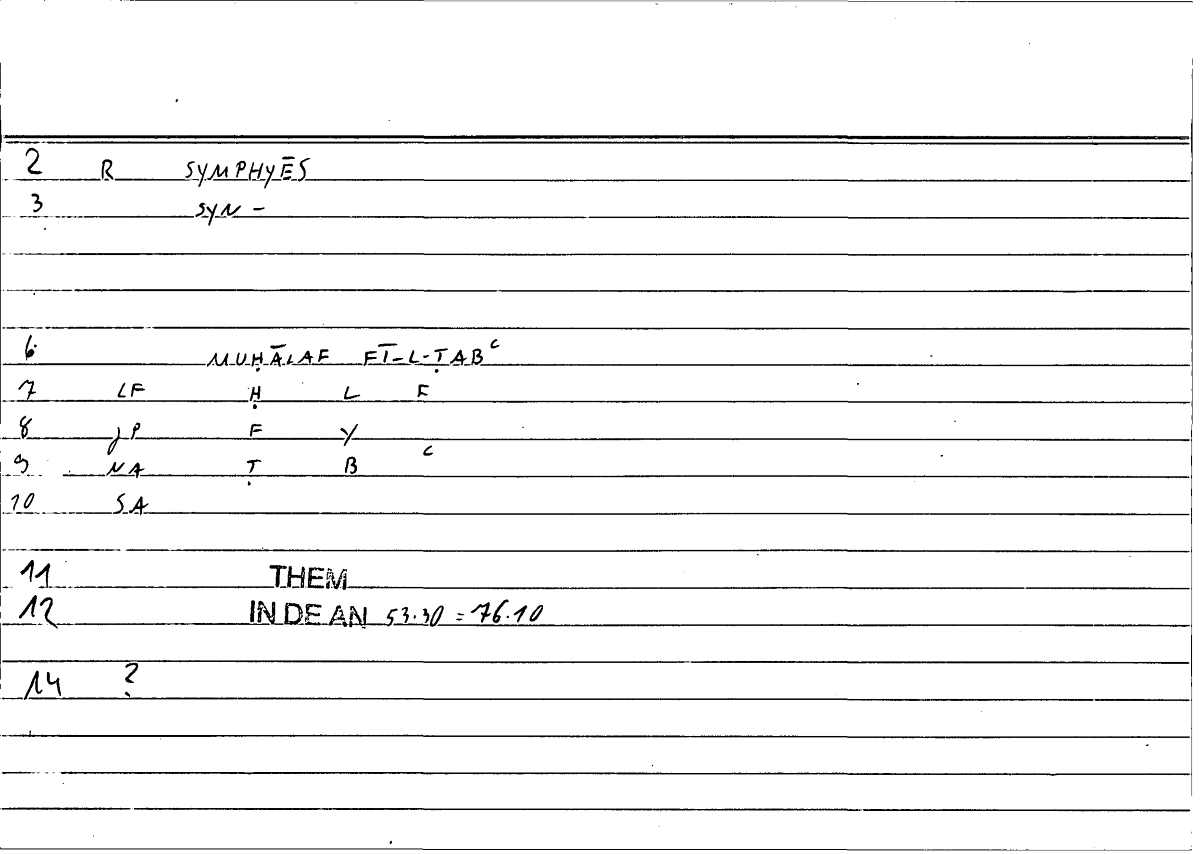 2 R SYMPHYĒS
3 SYN -
6 MUḤĀLAF FĪ-L-ṬABᶜ
7 LF Ḥ L F
8 JP F Y
9 NA Ṭ B ᶜ
10 SA
11 THEM
12 IN DE AN 53.30 = 76.10
14 ?